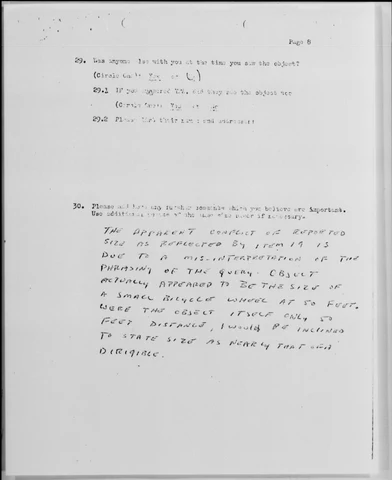 Page 8
29. Was anyone else with you at the time you saw the object?
(Circle One) Yes or No
29.1 If you answered YES, did they see the object too?
(Circle One) Yes or No
29.2 Please list their names and addresses:
30. Please add here any further comments which you believe are important.
Use additional sheets of the same size paper if necessary.
THE APPARENT CONFLICT OF REPORTED
SIZE AS REFLECTED BY ITEM 19 IS
DUE TO A MIS-INTERPRETATION OF THE
PHRASING OF THE QUERY. OBJECT
ACTUALLY APPEARED TO BE THE SIZE OF
A SMALL BICYCLE WHEEL AT 50 FEET.
WERE THE OBJECT ITSELF ONLY 50
FEET DISTANCE, I WOULD BE INCLINED
TO STATE SIZE AS NEARLY THAT OF A
DIRIGIBLE.